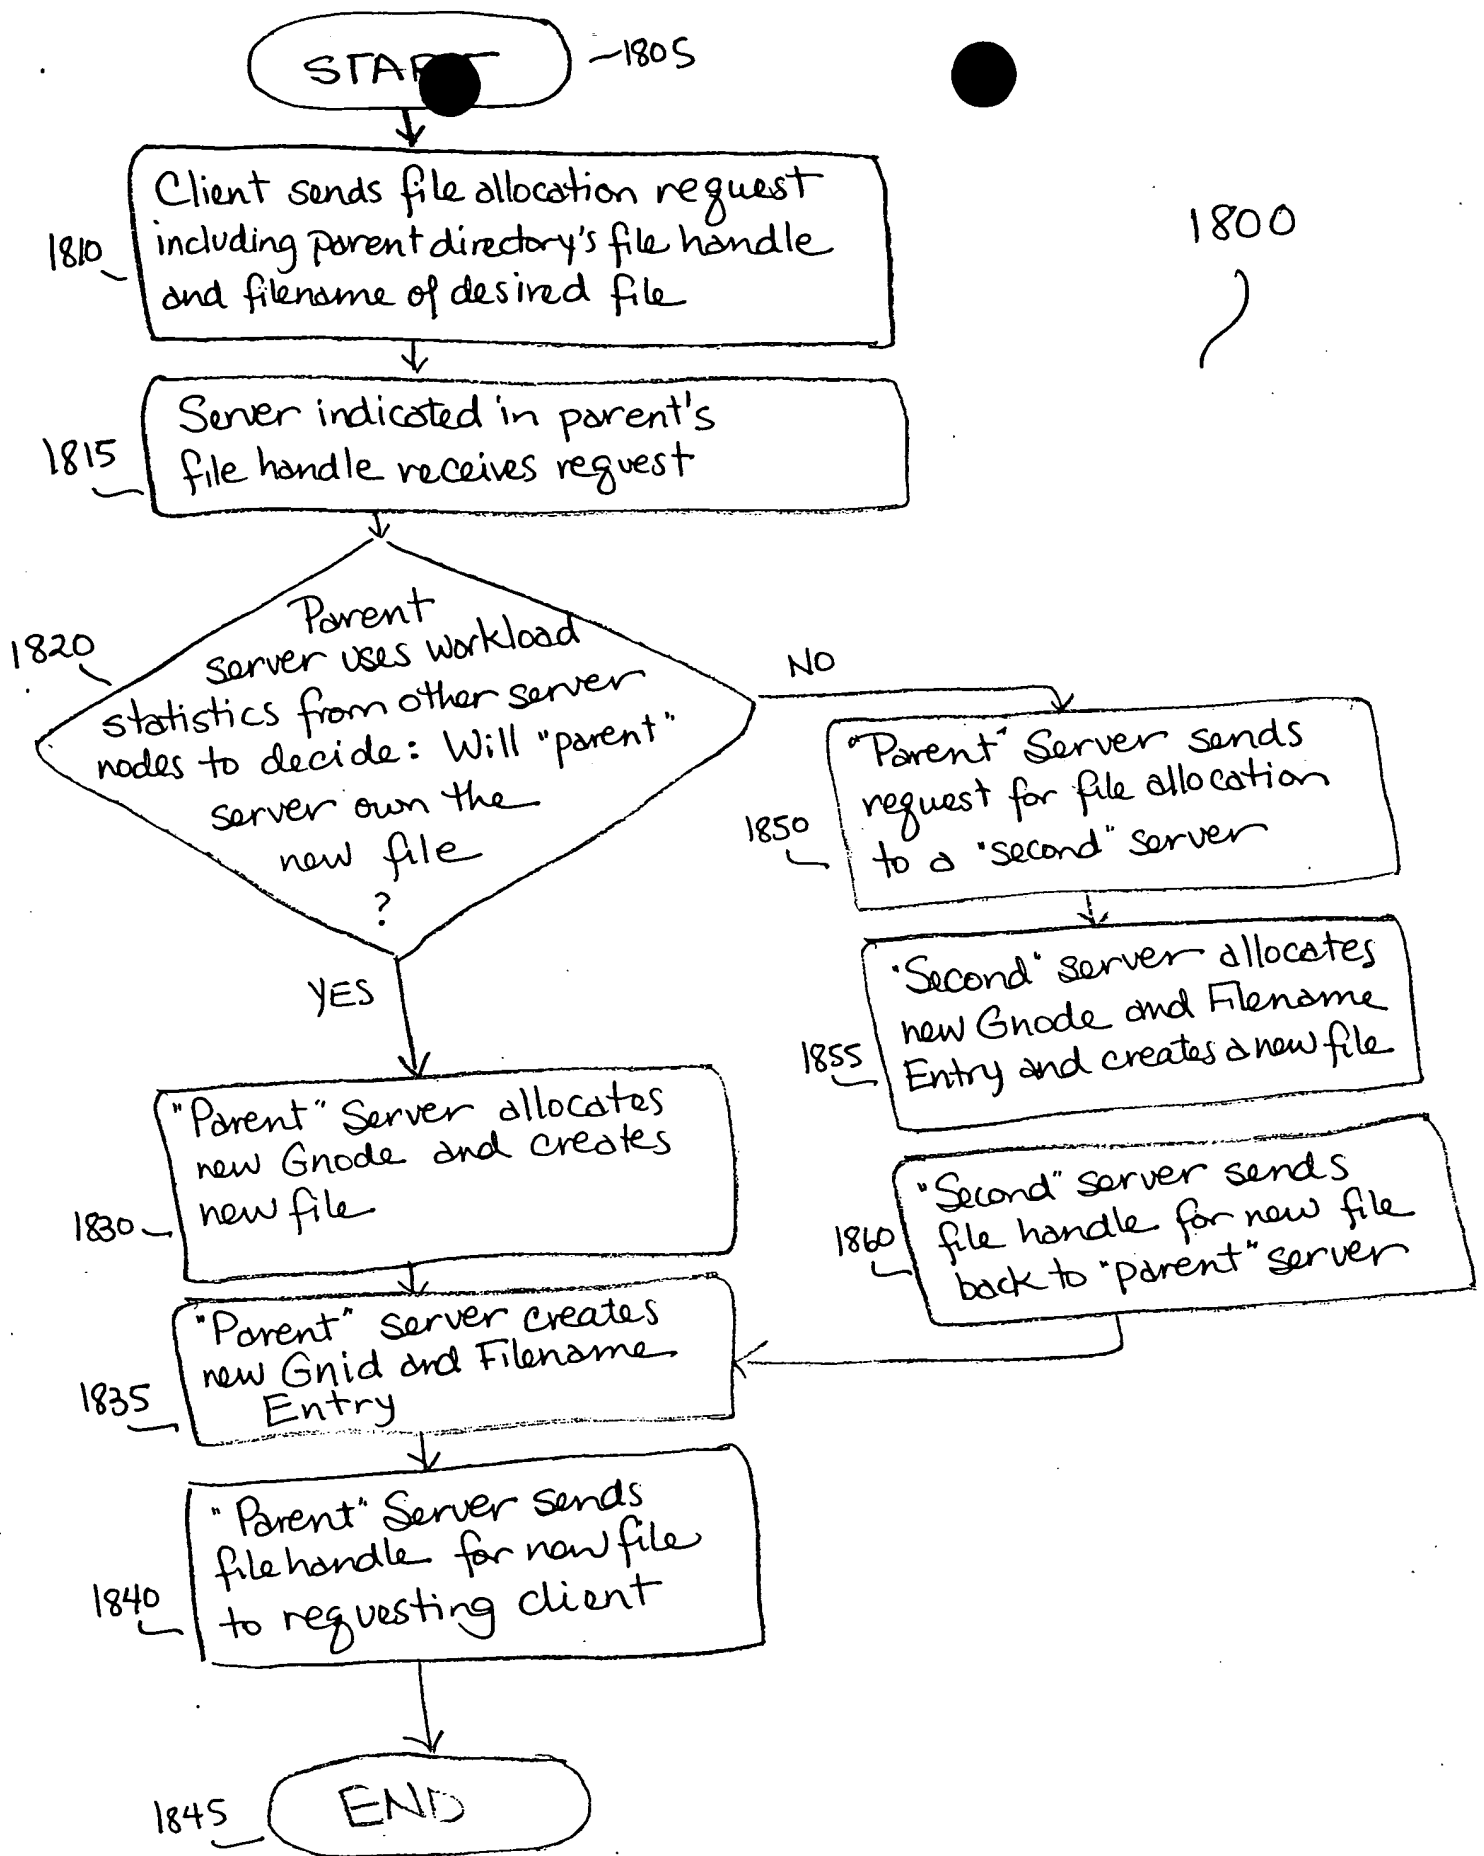 START
1805
Client sends file allocation request
including parent directory's file handle
and filename of desired file
1810
1800
Server indicated in parent's
file handle receives request
1815
Parent
server uses workload
statistics from other server
nodes to decide: Will "parent"
server own the
new file
?
1820
NO
YES
"Parent" Server sends
request for file allocation
to a "second" server
1850
"Second" server allocates
new Gnode and Filename
Entry and creates a new file
1855
"Second" server sends
file handle for new file
back to "parent" server
1860
"Parent" Server allocates
new Gnode and creates
new file
1830
"Parent" server creates
new Gnid and Filename
Entry
1835
"Parent" Server sends
file handle for new file
to requesting client
1840
END
1845